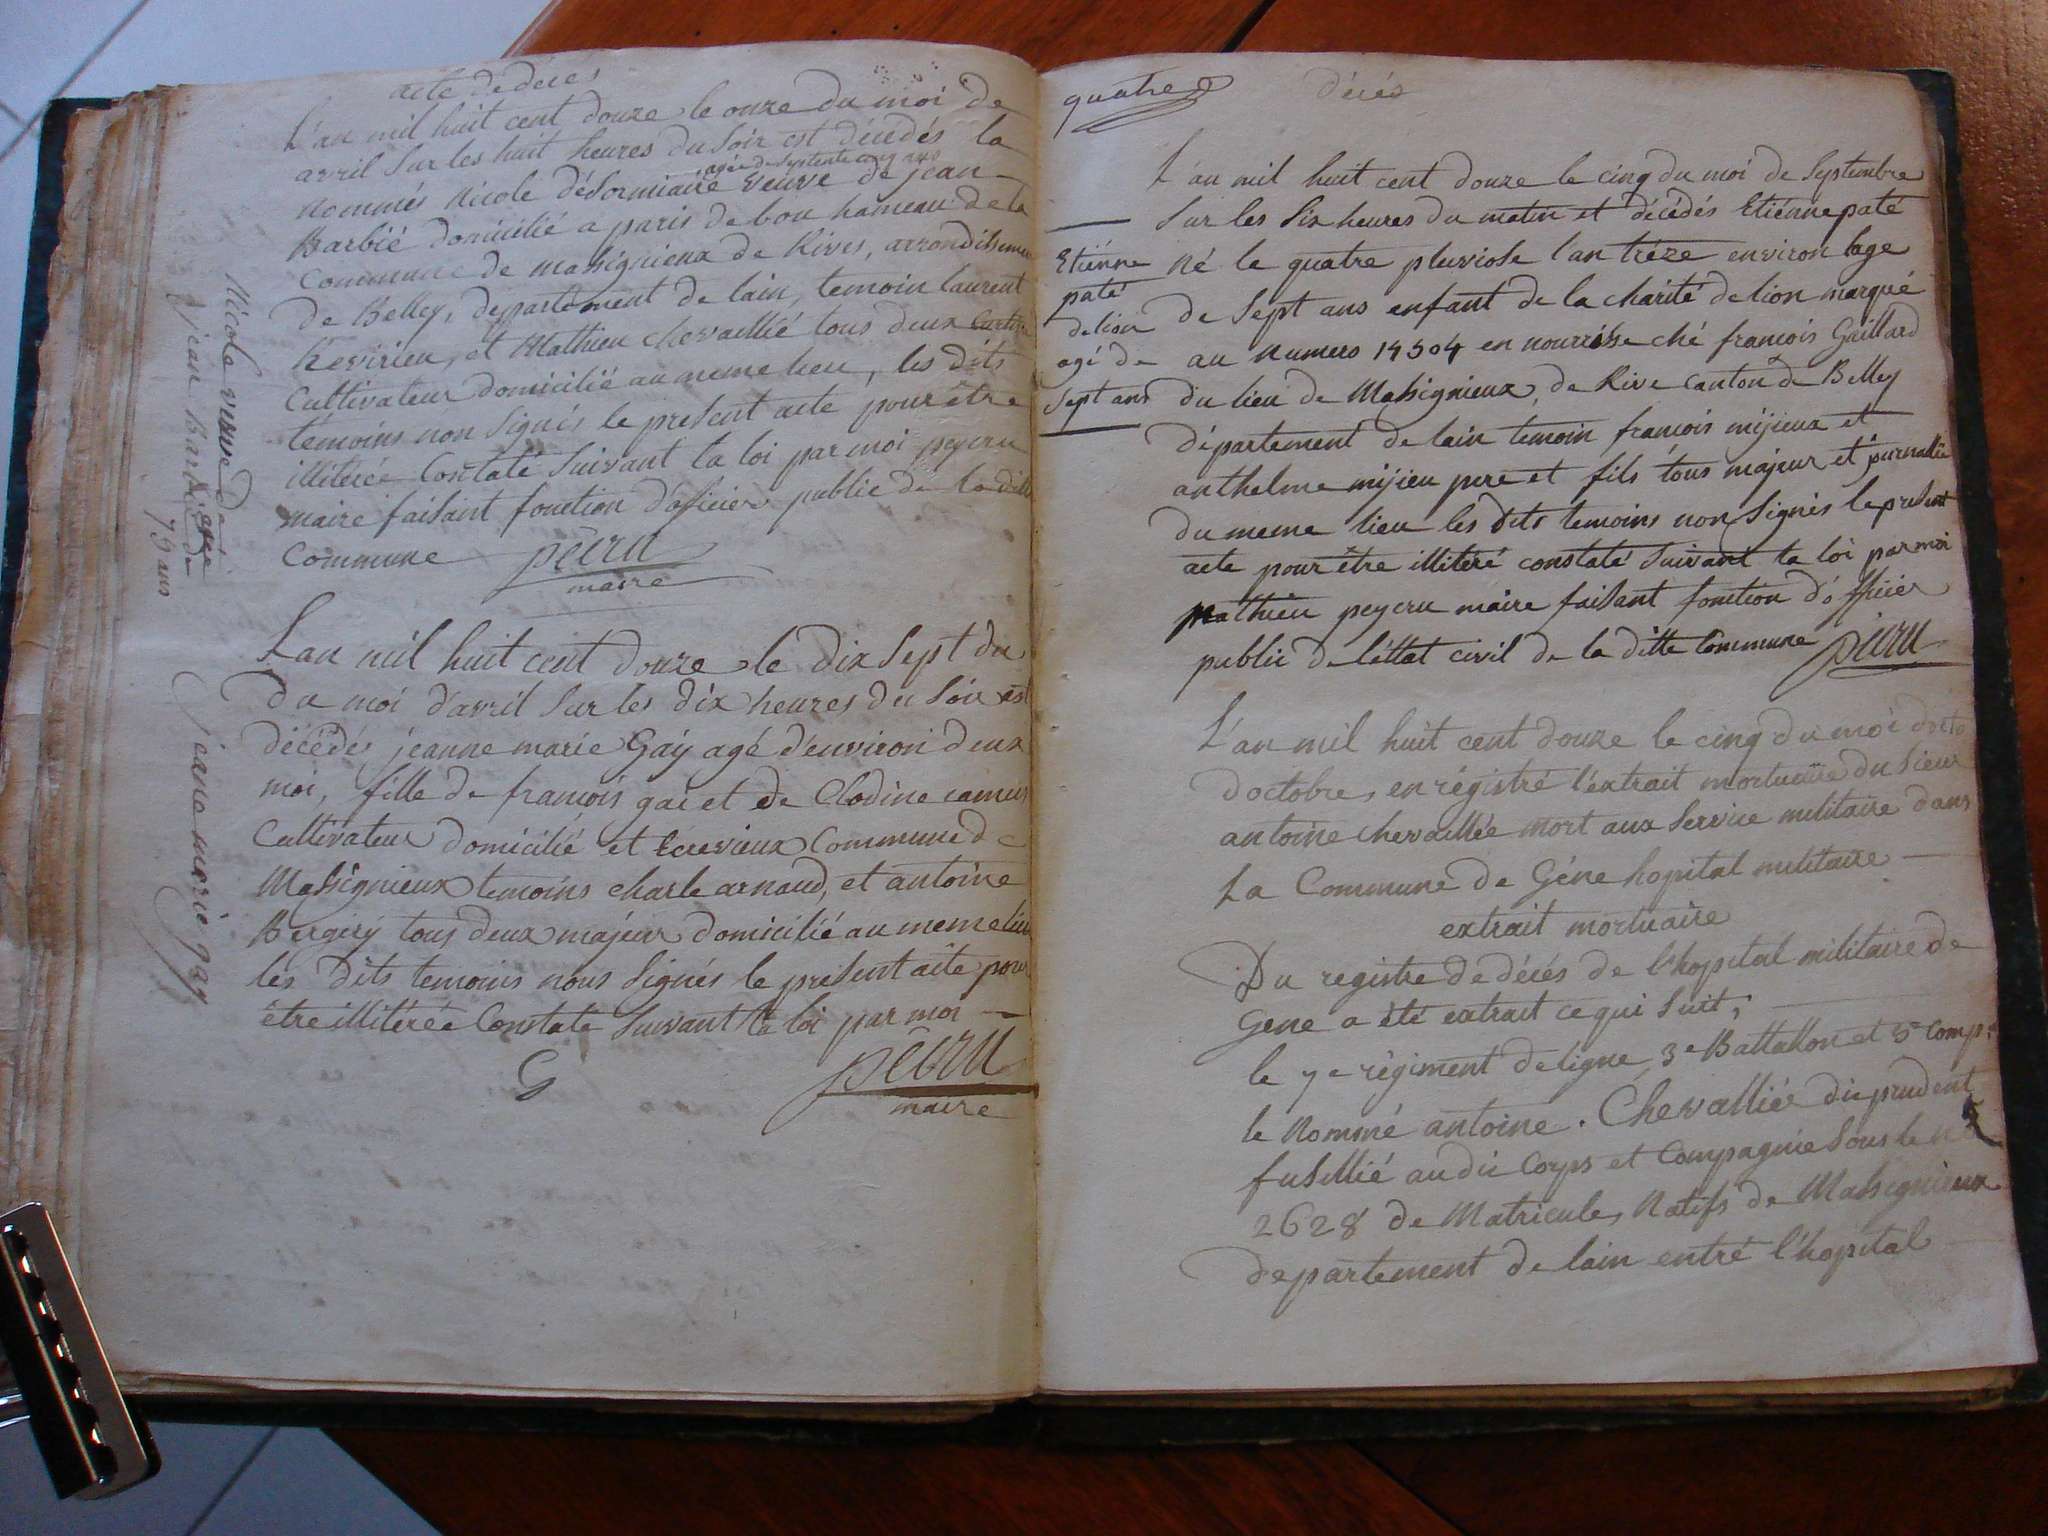 acte de déces
L'an mil huit cent douze le onze du moi de
avril Sur les huit heures du Soir est décédés la
agée de Septente cinq ans
nommés Nicole désormiaire veuve de jean
Barbié domicilié a paris de bou hameau de la
Commune de massignieux de Rives, arrondissemen
de Belley, departement de lain, temoin laurent
hevirieu, et Mathieu chevallié tous deux
Cultivateur domicilié au meme lieu, les dits
témoins non Signés le present acte pour être
illiterée Constaté Suivant la loi par moi peycru
maire faisant fonction d'officier public de la dite
Commune pecru
maire
Nicole veuve de
jean Barbié agée de
75 ans
L'an mil huit cent douze le dix Sept du
du moi d'avril Sur les dix heures du Soir est
décédés jeanne marie Gay agé d'environ deux
moi, fille de francois gai et de Clodine camus
Cultivateur domicilié et Ecrevieux Commune de
Massignieux temoins charle arnaud, et antoine
Bergery tous deux majeur domicilié au meme lieu
les dits temoins nous Signés le present acte pour
être illitérée Constate Suivant la loi par moi
G pecru
maire
jeanne marie gay
quatre décés
L'an mil huit cent douze le cinq du moi de Septembre
Sur les Six heures du matin et décédés Etiénne paté
Né le quatre pluviose l'an tréze environ lage
de Sept ans enfant de la charité de lion marqué
au Numero 14504 en nourrisse ché francois Gaillard
du lieu de Massignieux, de Rive canton de Belley
département de lain temoin francois mijieux et
anthelme mijieu pere et fils tous majeur et journallié
du meme lieu les dits temoins non Signés le present
acte pour être illitéré constaté Suivant la loi par moi
Mathieu peycru maire faisant fonction d'officier
public de l'éttat civil de la ditte Commune pecru
Etiénne
paté
de lion
agé de
Sept ans
L'an mil huit cent douze le cinq du moi docto
doctobre, en régistré l'éxtrait mortuaire du Sieur
antoine chevallée mort aux Service militaire dans
La Commune de Géne hopital militaire
extrait mortuaire
Du registre de décés de l'hopital militaire de
Gene a été extrait ce qui Suit;
le 7e régiment de ligne, 3e Battallon et 3e Comp.e
le Nommé antoine. Chevalliée du prudent
fusillié au dit Corps et Compagnie Sous le n°
2628 de Matricule, Natifs de Massignieux
departement de lain entré l'hopital